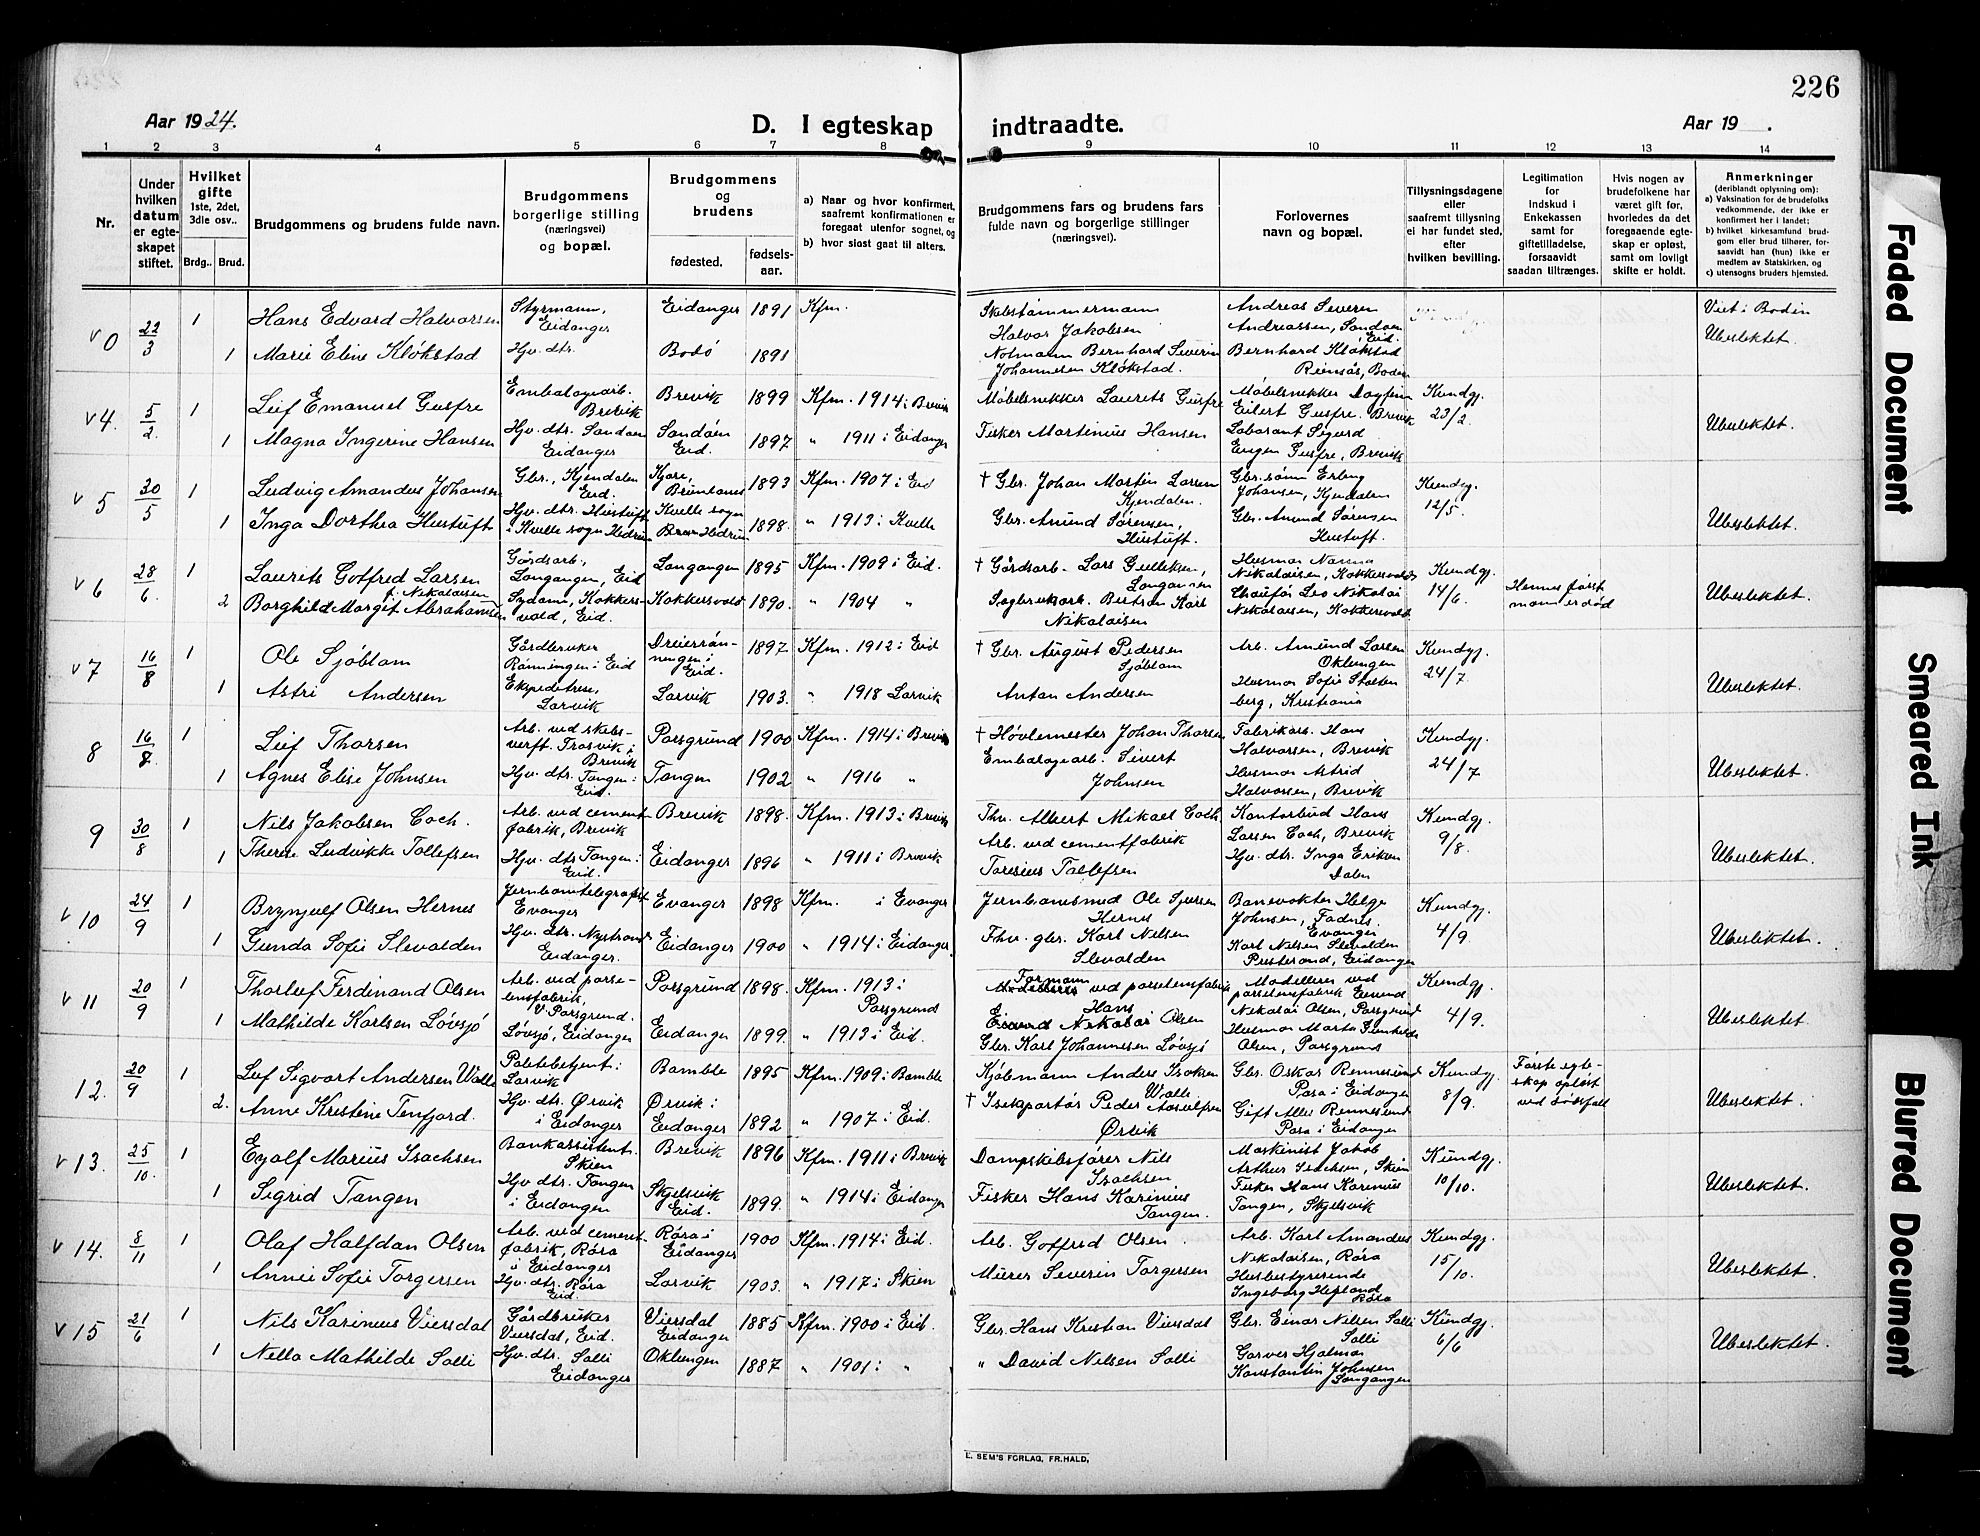 226
Aar 1924.
D. I egteskap indtraadte.
Aar 19 .
1 2 3 4 5 6 7 8 9 10 11 12 13 14
Nr.
Under hvilken datum er egte-skapet stiftet.
Hvilket gifte 1ste, 2det, 3die osv..
Brdg.. Brud.
Brudgommens og brudens fulde navn.
Brudgommens borgerlige stilling (næringsvei) og bopæl.
Brudgommens og brudens
fødested. fødsels-aar.
a) Naar og hvor konfirmert, saafremt konfirmationen er foregaat utenfor sognet, og
b) hvor sidst gaat til alters.
Brudgommens fars og brudens fars fulde navn og borgerlige stillinger (næringsvei).
Forlovernes navn og bopæl.
Tillysningsdagene eller saafremt tillysning ei har fundet sted, efter hvilken bevilling.
Legitimation for Indskud i Enkekassen samt for giftetilladelse, forsaavidt saadan tiltrænges.
Hvis nogen av brudefolkene har været gift før, hvorledes da det foregaaende egte-skap er opløst, samt om lovligt skifte er holdt.
Anmerkninger (deriblandt oplysning om):
a) Vaksination for de brudefolks vedkommende, der ikke er konfirmert her i landet;
b) hvilket kirkesamfund brud-gom eller brud tilhører, for-saavidt han (hun) ikke er medlem av Statskirken, og
c) utensogns bruders hjemsted.
v 0 22/3 1 Hans Edvard Halvorsen Styrmann, Eidanger Eidanger 1891 Kfm. Skibstømmermann Halvor Jakobsen Andreas Severin Andreassen, Sandøen, Eid. Viet i Bodin
1 Marie Eline Kløkstad Hjv. dtr. Bodø 1891 Notmann Bernhard Severin Johannesen Kløkstad. Bernhard Kløkstad Bodin Ubeslektet.
v 4. 5/2. 1 Leif Emanuel Gusfre Embalagearb. Brevik Brevik 1899 Kfm. 1914 i Brevik Møbelsnekker Laurits Gusfre Møbelsnekker Dagfin Eilert Gusfre. Brevik Kundgj. 23/2.
1 Magna Ingerine Hansen Hjv. dtr. Sandøen Eidanger Sandøen Eid. 1897 " 1911 i Eidanger Fisker Martinius Hansen Laborant Sigurd Eugen Gusfre, Brevik Ubeslektet.
v 5 30/5 1 Ludvig Amandus Johansen Gbr., Kjendalen Eid. Kjøre, Brunlanes 1893 Kfm. 1907 i Eid † Gbr. Johan Martin Larsen Kjendalen. Gbr. sønn Erling Johansen, Kjendalen Kundgj. 12/5.
1 Inga Dorthea Hustuft Hjv. dtr. Hustuft i Kvelle sogn Hedrum Kvelle sogn Hedrum 1898. " 1913 i Kvelle Gbr. Amund Sørensen, Hustuft. Gbr. Amund Sørensen Hustuft. Ubeslektet.
v 6 28/6. 1 Laurits Gotfred Larsen Gårdsarb., Langangen, Eid Langangen 1895 Kfm. 1909 i Eid. † Gårdsarb. Lars Gulliksen, Langangen Husmor Nanna Nikolaisen, Kokkersvold Kundgj. 14/6.
2 Borghild Margit Abrahamsen f. Nikolaisen Sydame, Kokkers-vold, Eid. Kokkersvold 1890. " 1904 " Sagbruksarb. Bertran Karl Nikolaisen Chaufør Leo Nikolai Nikolaisen, Kokkersvold Hennes først mann er død Ubeslektet.
v 7 16/8 1 Ole Sjøblom Gårdbruker Rønningen i Eid Dreierrøn-ningen i Eid. 1897 Kfm. 1912 i Eid † Gbr. August Pedersen Sjøblom Arb. Amund Larsen Oklungen Kundgj. 24/7.
1 Astri Andersen Ekspeditrise, Larvik Larvik 1903. " 1918 Larvik Anton Andersen Husmor Sofie Stolten berg, Kristiania Ubeslektet.
8 16/8. 1 Leif Thorsen Arb. ved skibs-verft. Trosvik i Brevik Porsgrund 1900 Kfm. 1914 i Brevik † Høvlemester Johan Thorsen Fabrikarb. Hans Halvorsen, Brevik Kundgj. 24/7
1 Agnes Elise Johnsen Hjv. dtr. Tangen i Eid. Tangen 1902 " 1916 " Embalagearb. Sivert Johnsen Husmor Astrid Halvorsen, Brevik Ubeslektet.
9 30/8 1 Nils Jakobsen Coch. Arb. ved cement fabrik, Brevik Brevik 1898. Kfm. 1913 i Brevik Thv. Albert Mikael Coch Kontorbud Hans Larsen Coch, Brevik Kundgj. 9/8.
1 Therese Ludvikke Tollefsen Hjv. dtr. Tangen i Eid. Eidanger 1896 " 1911 i Brevik Arb. ved cementfabrik Toresius Tollefsen Hjv. dtr. Inga Eriksen Dalen Ubeslektet.
v 10 24/9 1 Brynjulf Olsen Hernes Jernbanetelegrafist Evanger Evanger 1898 Kfm. i Evanger Jernbanesmed Ole Sjursen Hernes Banevokter Helge Johnsen, Fadnes, Evanger Kundgj. 4/9.
1 Gunda Sofie Slevolden Hjv. dtr. Nystrand Eidanger. Eidanger 1900 " 1914 i Eidanger Fhv. gbr. Karl Nilsen Slevolden Karl Nilsen Slevolden Eidanger Ubeslektet.
v 11 20/9 1 Thorleif Ferdinand Olsen Arb. ved porse-lensfabrik, V. Porsgrund. Porsgrund 1898. Kfm. 1913 i Porsgrund Formann ved porselensfabrik Hans Nikolai Olsen Modellerer ved porselensfabrik Nikolai Olsen, Porsgrund Kundgj. 4/9.
1 Mathilde Karlsen Løvsjø Løvsjø, Eidanger Eidanger 1899. " 1913 i Eid. Gbr. Karl Johannesen Løvsjø Husmor Marta Gunhilde Olsen, Porsgrund Ubeslektet
12. 20/9 1 Leif Sigvart Andersen Wolle Politibetjent i Larvik Bamble 1895 Kfm. 1909 i Bamble Kjøbmann Anders Isaksen Wolle Gbr. Oskar Rennesund Pora i Eidanger Kundgj. 8/9. Første egte-skap opløst ved dødsfall
2. Anne Kristine Tenfjord. Hjv. dtr. Ørvik i Eidanger Ørvik i Eidanger 1892 " 1907 i Eid. † Iseksportør Peder Ørvik Gift Alli Rennesund Pora i Eidanger Ubeslektet.
v 13. 25/10. 1 Eyolf Marius Isachsen Bankassistent. Skien Brevik 1896 Kfm. 1911 i Brevik Dampskibsfører Nils Isachsen Maskinist Jakob Arthur Isachsen, Skien Kundgj. 10/10.
1 Sigrid Tangen Hjv dtr. Tangen i Eidanger Skjelsvik Eid. 1899. " 1914 i Eidanger Fisker Hans Karinius Tangen. Fisker Hans Karinius Tangen, Skjelsvik Ubeslektet.
v 14. 8/11 1 Olaf Halfdan Olsen Arb. ved cement fabrik, Røra i Eidanger Røra i Eidanger 1900 Kfm. 1914 i Eid. Arb. Gotfred Olsen. Arb. Karl Amandus Nikolaisen, Røra Kundgj. 15/10.
1 Annie Sofie Torgersen Hjv. dtr. Røra Eid. Larvik 1903. " 1917 i Skien Murer Severin Torgersen Husbestyrerinde Ingeborg Røra Ubeslektet.
v 15 21/6 1 Nils Karinius Viersdal Gårdbruker Viersdal, Eid. Viersdal Eidanger 1885 Kfm. 1900 i Eid. Gbr. Hans Kristian Viersdal Gbr. Einar Nilsen Solli Solli Kundgj. 6/6
1 Nella Mathilde Solli Hjv. dtr. Solli Eidanger Oklungen 1887 " 1901 i " " David Nilsen Solli Garver Hjalmar Konstantin Johnsen Langangen Ubeslektet.
L. SEM'S FORLAG, FR.HALD,
Faded Document
Smeared Ink
Blurred Document